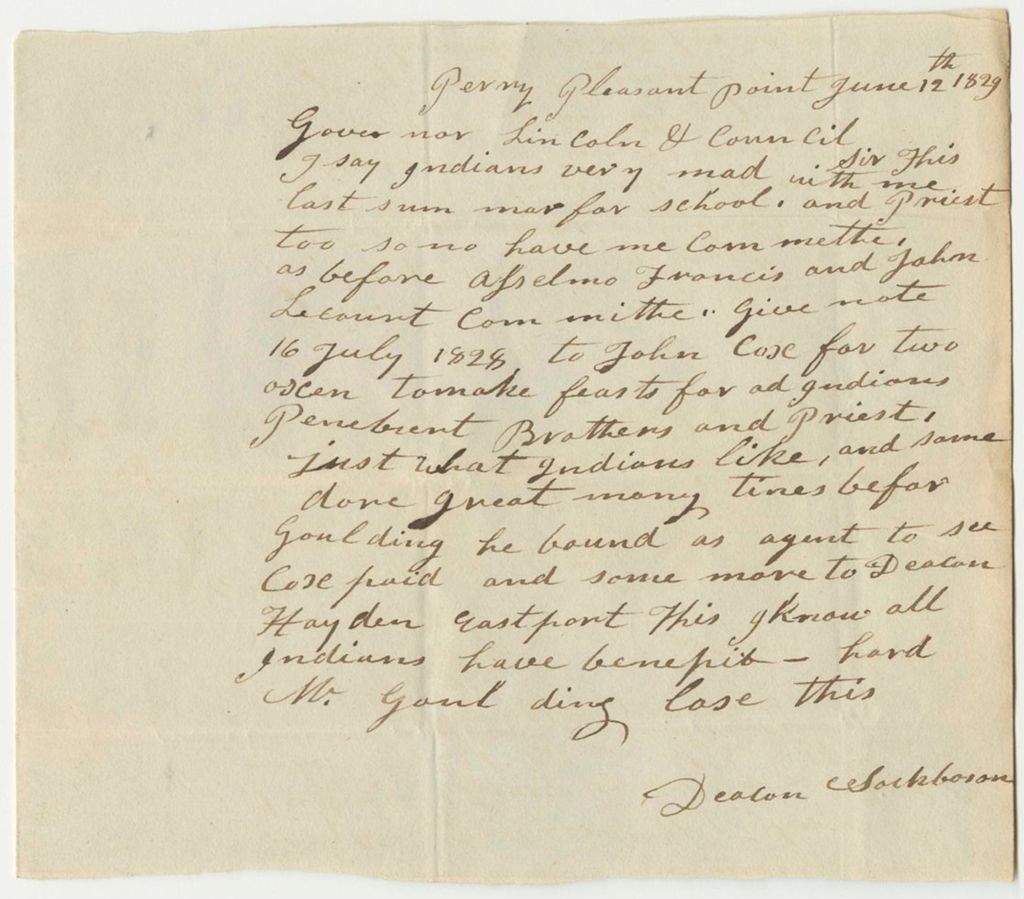 Perry Pleasant point June 12th 1829
Gover nor Lin coln & Coun cil
I say Indians very mad with me Sir This
last sum mar for school. and Priest
too so no have me Com methe,
as before Asselmo Francis and John
Lecount Com mithe. Give note
16 July 1828, to John Coxe for two
oxen tomake feasts for ad Indians
Penebsent Brothers and Priest,
just what Indians like, and same
done great many tines befor
Goulding he bound as agent to see
Coxe paid and some more to Deacon
Hayden Eastport This I Know all
Indians have benepit - hard
Mr. Goul ding lose this
Deacon Sockbason